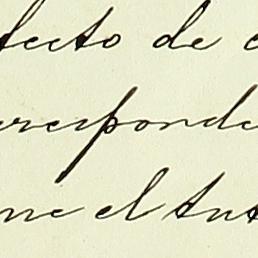 fecto de c
rresponde
ne el Int